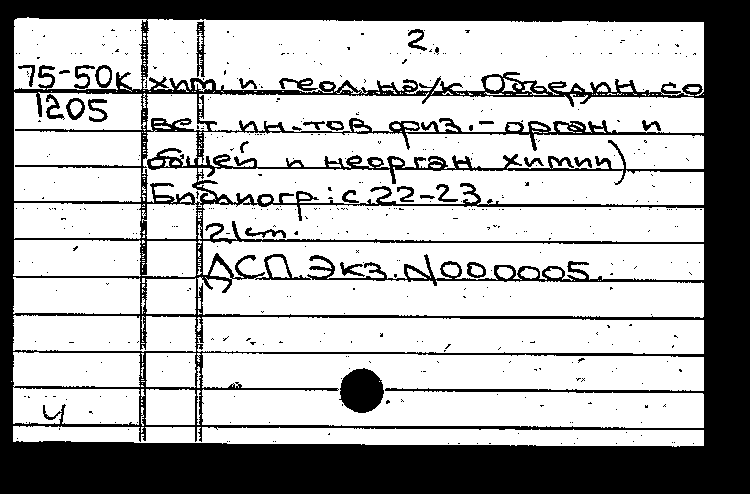 2.
75-50к хим. и геол. наук Объедин. со
1205
вет ин-тов физ.-орган. и
общей и неорган. химии)
Библиогр.: с. 22-23.
21см.
ДСП. Экз. №000005.
4